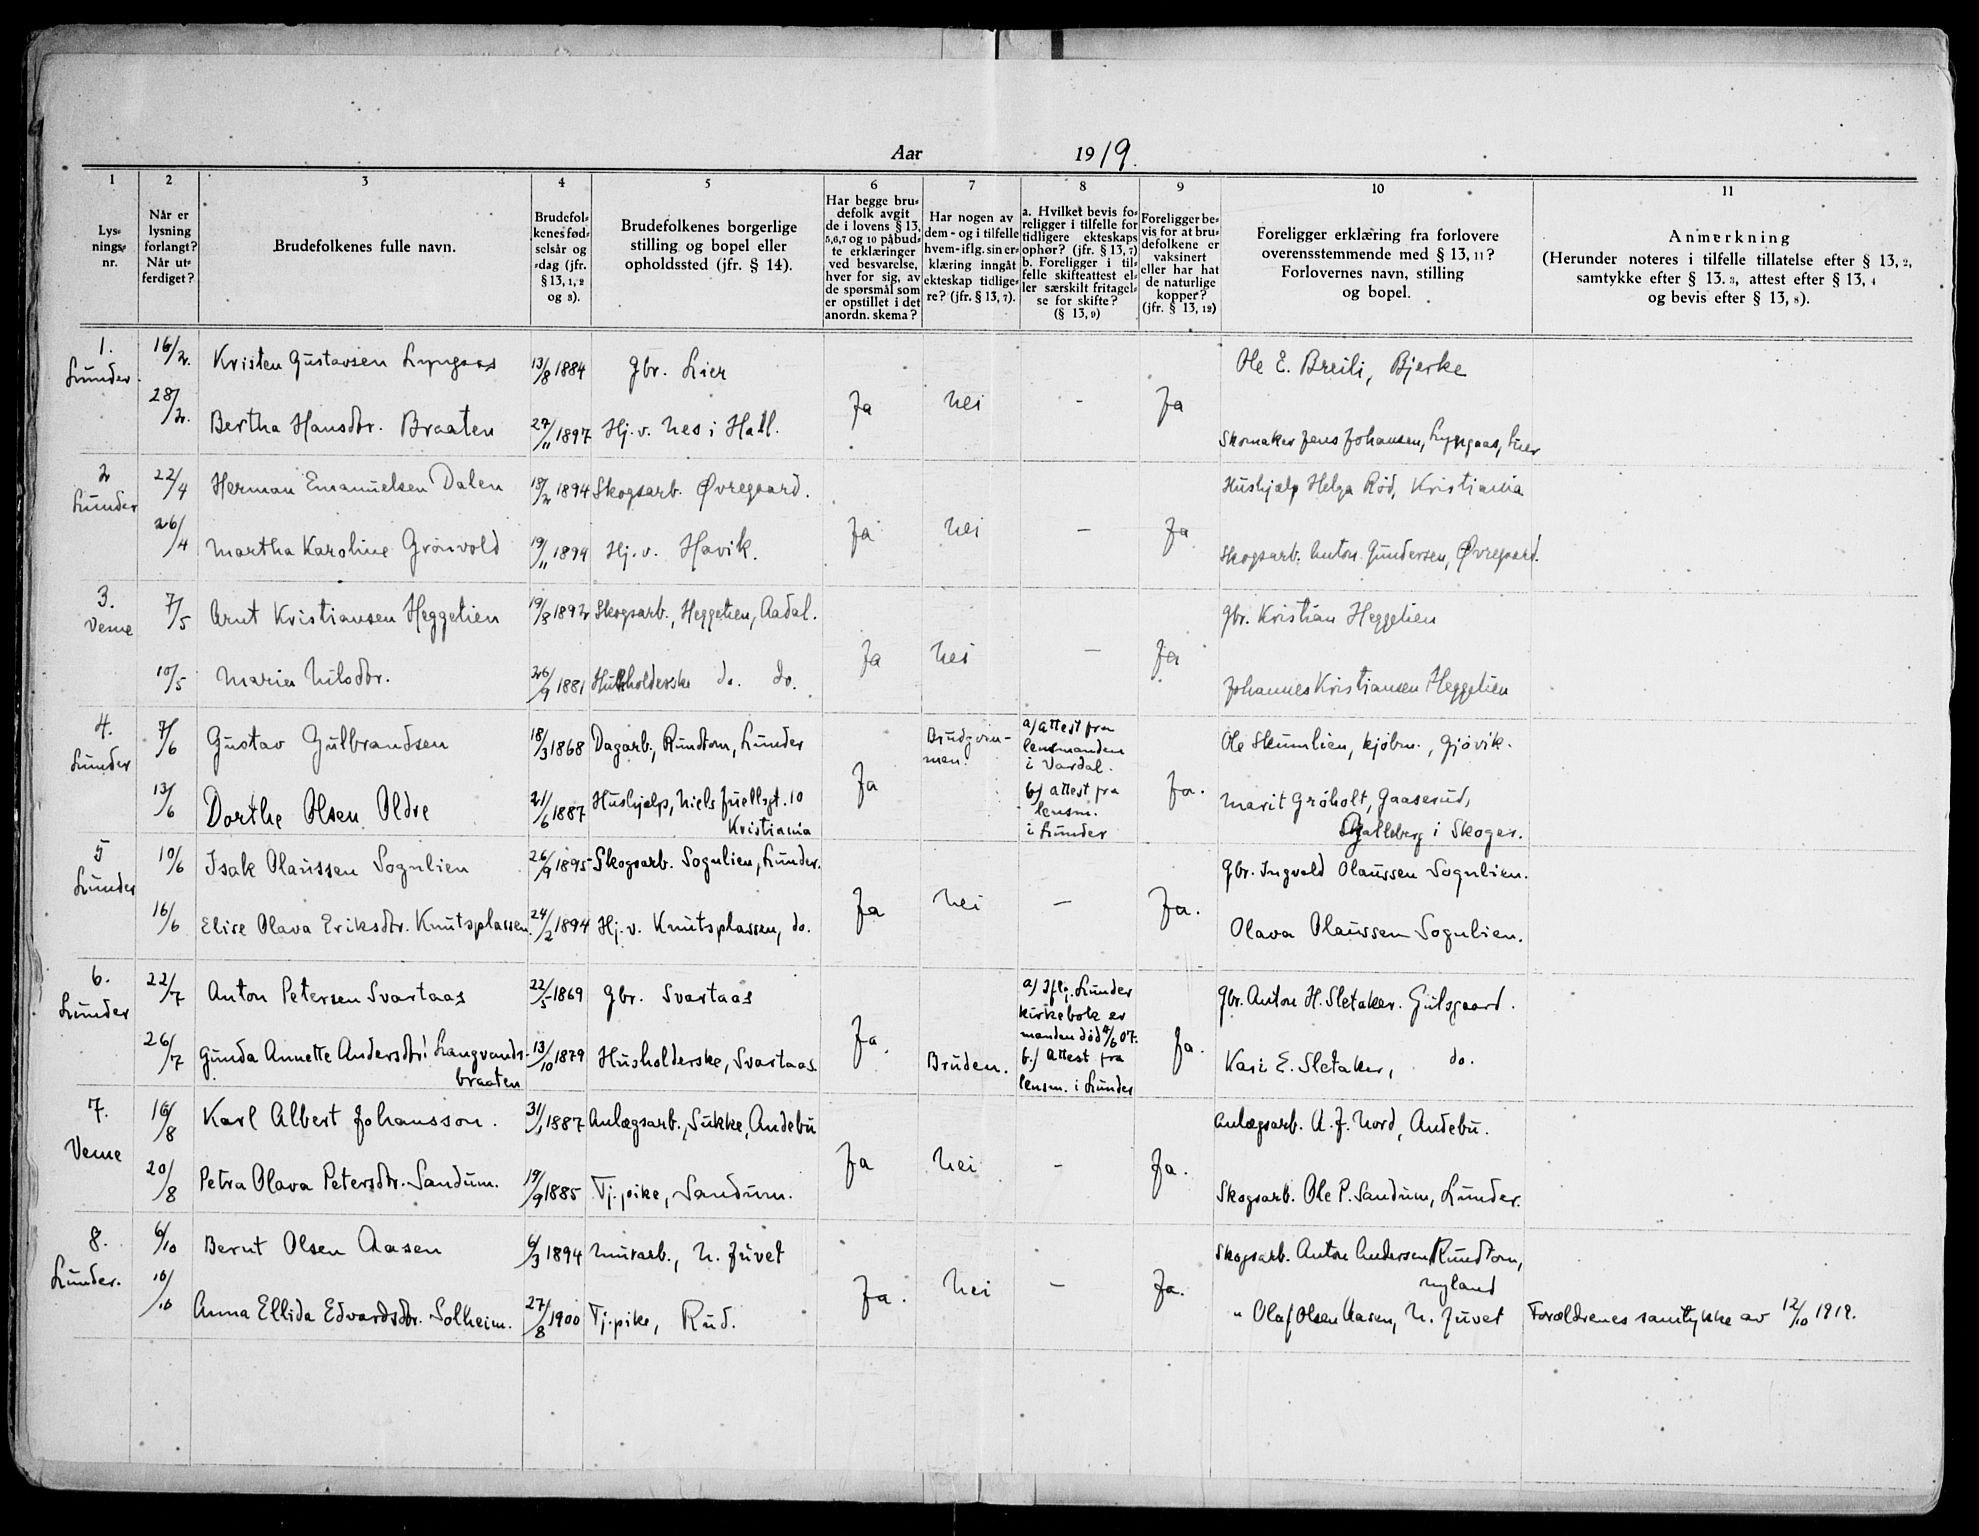 Aar 1919.
1
Lys=
nings=
nr.
2
Når er
lysning
forlangt?
Når ut=
ferdiget?
3
Brudefolkenes fulle navn.
4
Brudefol=
kenes fød=
selsår og
=dag (jfr.
§ 13, 1, 2
og 3).
5
Brudefolkenes borgerlige
stilling og bopel eller
opholdssted (jfr. § 14).
6
Har begge bru=
defolk avgit
de i lovens § 13,
5,6,7 og 10 påbud=
te erklæringer
ved besvarelse,
hver for sig, av
de spørsmål som
er opstillet i det
anordn. skema?
7
Har nogen av
dem - og i tilfelle
hvem - iflg. sin er=
klæring inngåt
ekteskap tidlige=
re? (jfr. § 13, 7).
8
a. Hvilket bevis fo=
religger i tilfelle for
tidligere ekteskaps
ophør? (jfr. § 13, 7)
b. Foreligger i til=
felle skifteattest el=
ler særskilt fritagel=
se for skifte?
(§ 13, 9)
9
Foreligger be=
vis for at bru=
defolkene er
vaksinert
eller har hat
de naturlige
kopper?
(jfr. § 13, 12)
10
Foreligger erklæring fra forlovere
overensstemmende med § 13, 11?
Forlovernes navn, stilling
og bopel.
11
Anmerkning
(Herunder noteres i tilfelle tillatelse efter § 13, 2,
samtykke efter § 13. 3, attest efter § 13, 4
og bevis efter § 13, 8).
1. 16/2. Kristen Gustavsen Lyngaas 13/8 1884 Gbr. Lier Ole E. Breili, Bjerke
Lunder
28/2. Bertha Hansdtr. Braaten 27/11 1897 Hj. v. Nes i Hall. Ja Nei - Ja Skomaker Jens Johansen, Lyngaas, Lier
2 22/4 Herman Emanuelsen Dalen 18/2 1894 Skogsarb. Øvregaard. Hushjælp Helga Rød, Kristiania
Lunder
26/4 Martha Karoline Grønvold 19/11 1894 Hj. v. Hovik. Ja Nei - Ja Skogsarb. Anton Gundersen, Øvregaard.
3. 7/5 Arnt Kristiansen Heggelien 19/8 1892 Skogsarb., Heggelien, Aadal. Gbr. Kristian Heggelien
Veme
10/5 Maria Nilsdtr. 26/9 1881 Husholderske do. do. Ja Nei - Ja Johannes Kristiansen Heggelien
4. 7/6 Gustav Gulbrandsen 18/3 1868 Dagarb., Rundtom, Lunder Brudgom-
men. a) Attest fra
lensmanden
i Vardal. Ole Skumlien, kjøbm., Gjøvik.
Lunder
13/6 Dorthe Olsen Oldre 21/6 1887 Hushjælp, Niels Juellsgt. 10
Kristiania Ja b) Attest fra
lensm.
i Lunder Ja. Marit Grøholt, Gaaserud,
Skalleberg i Skoger.
5 10/6 Isak Olaussen Sognlien 26/9 1895 Skogsarb. Sognlien, Lunder. Gbr. Ingvald Olaussen Sognlien.
Lunder
16/6 Elise Olava Eriksdtr. Knutsplassen. 24/2 1894 Hj. v. Knutsplassen, do. Ja Nei - Ja. Olava Olaussen Sognlien.
6. 22/7 Anton Petersen Svartaas 22/5 1869 Gbr. Svartaas a) Iflg. Lunder
kirkebok er
manden død 4/6 07. Gbr. Anton H. Sletaker. Gulsgaard.
Lunder
26/7 Gunda Annette Andersdtr. Langvands-
braaten 13/10 1879 Husholderske, Svartaas. Ja. Bruden. b.) Attest fra
lensm. i Lunder Ja. Kari E. Sletaker, do.
7. 16/8 Karl Albert Johansson. 31/1 1887 Anlægsarb., Sukke, Andebu Anlægsarb. A. J. Nord, Andebu.
Veme
20/8 Petra Olava Petersdtr. Sandum. 19/9 1885 Tj. pike, Sandum. Ja Nei - Ja. Skogsarb. Ole P. Sandum, Lunder.
8. 6/10 Bernt Olsen Aasen 6/3 1894 Murarb., N. Juvet Skogsarb. Anton Andersen Rundtom,
Nyland
Lunder.
10/10 Anna Ellida Edvardsdtr. Solheim. 27/8 1900 Tj. pike, Rud. Ja. Nei - Ja. " Olaf Olsen Aasen, N. Juvet Forældrenes samtykke av 12/10 1919.